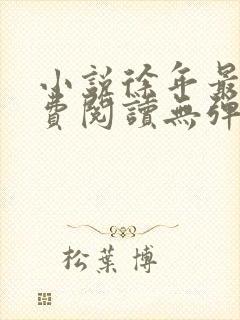 小說徐年最
費閱讀無彈
松葉博